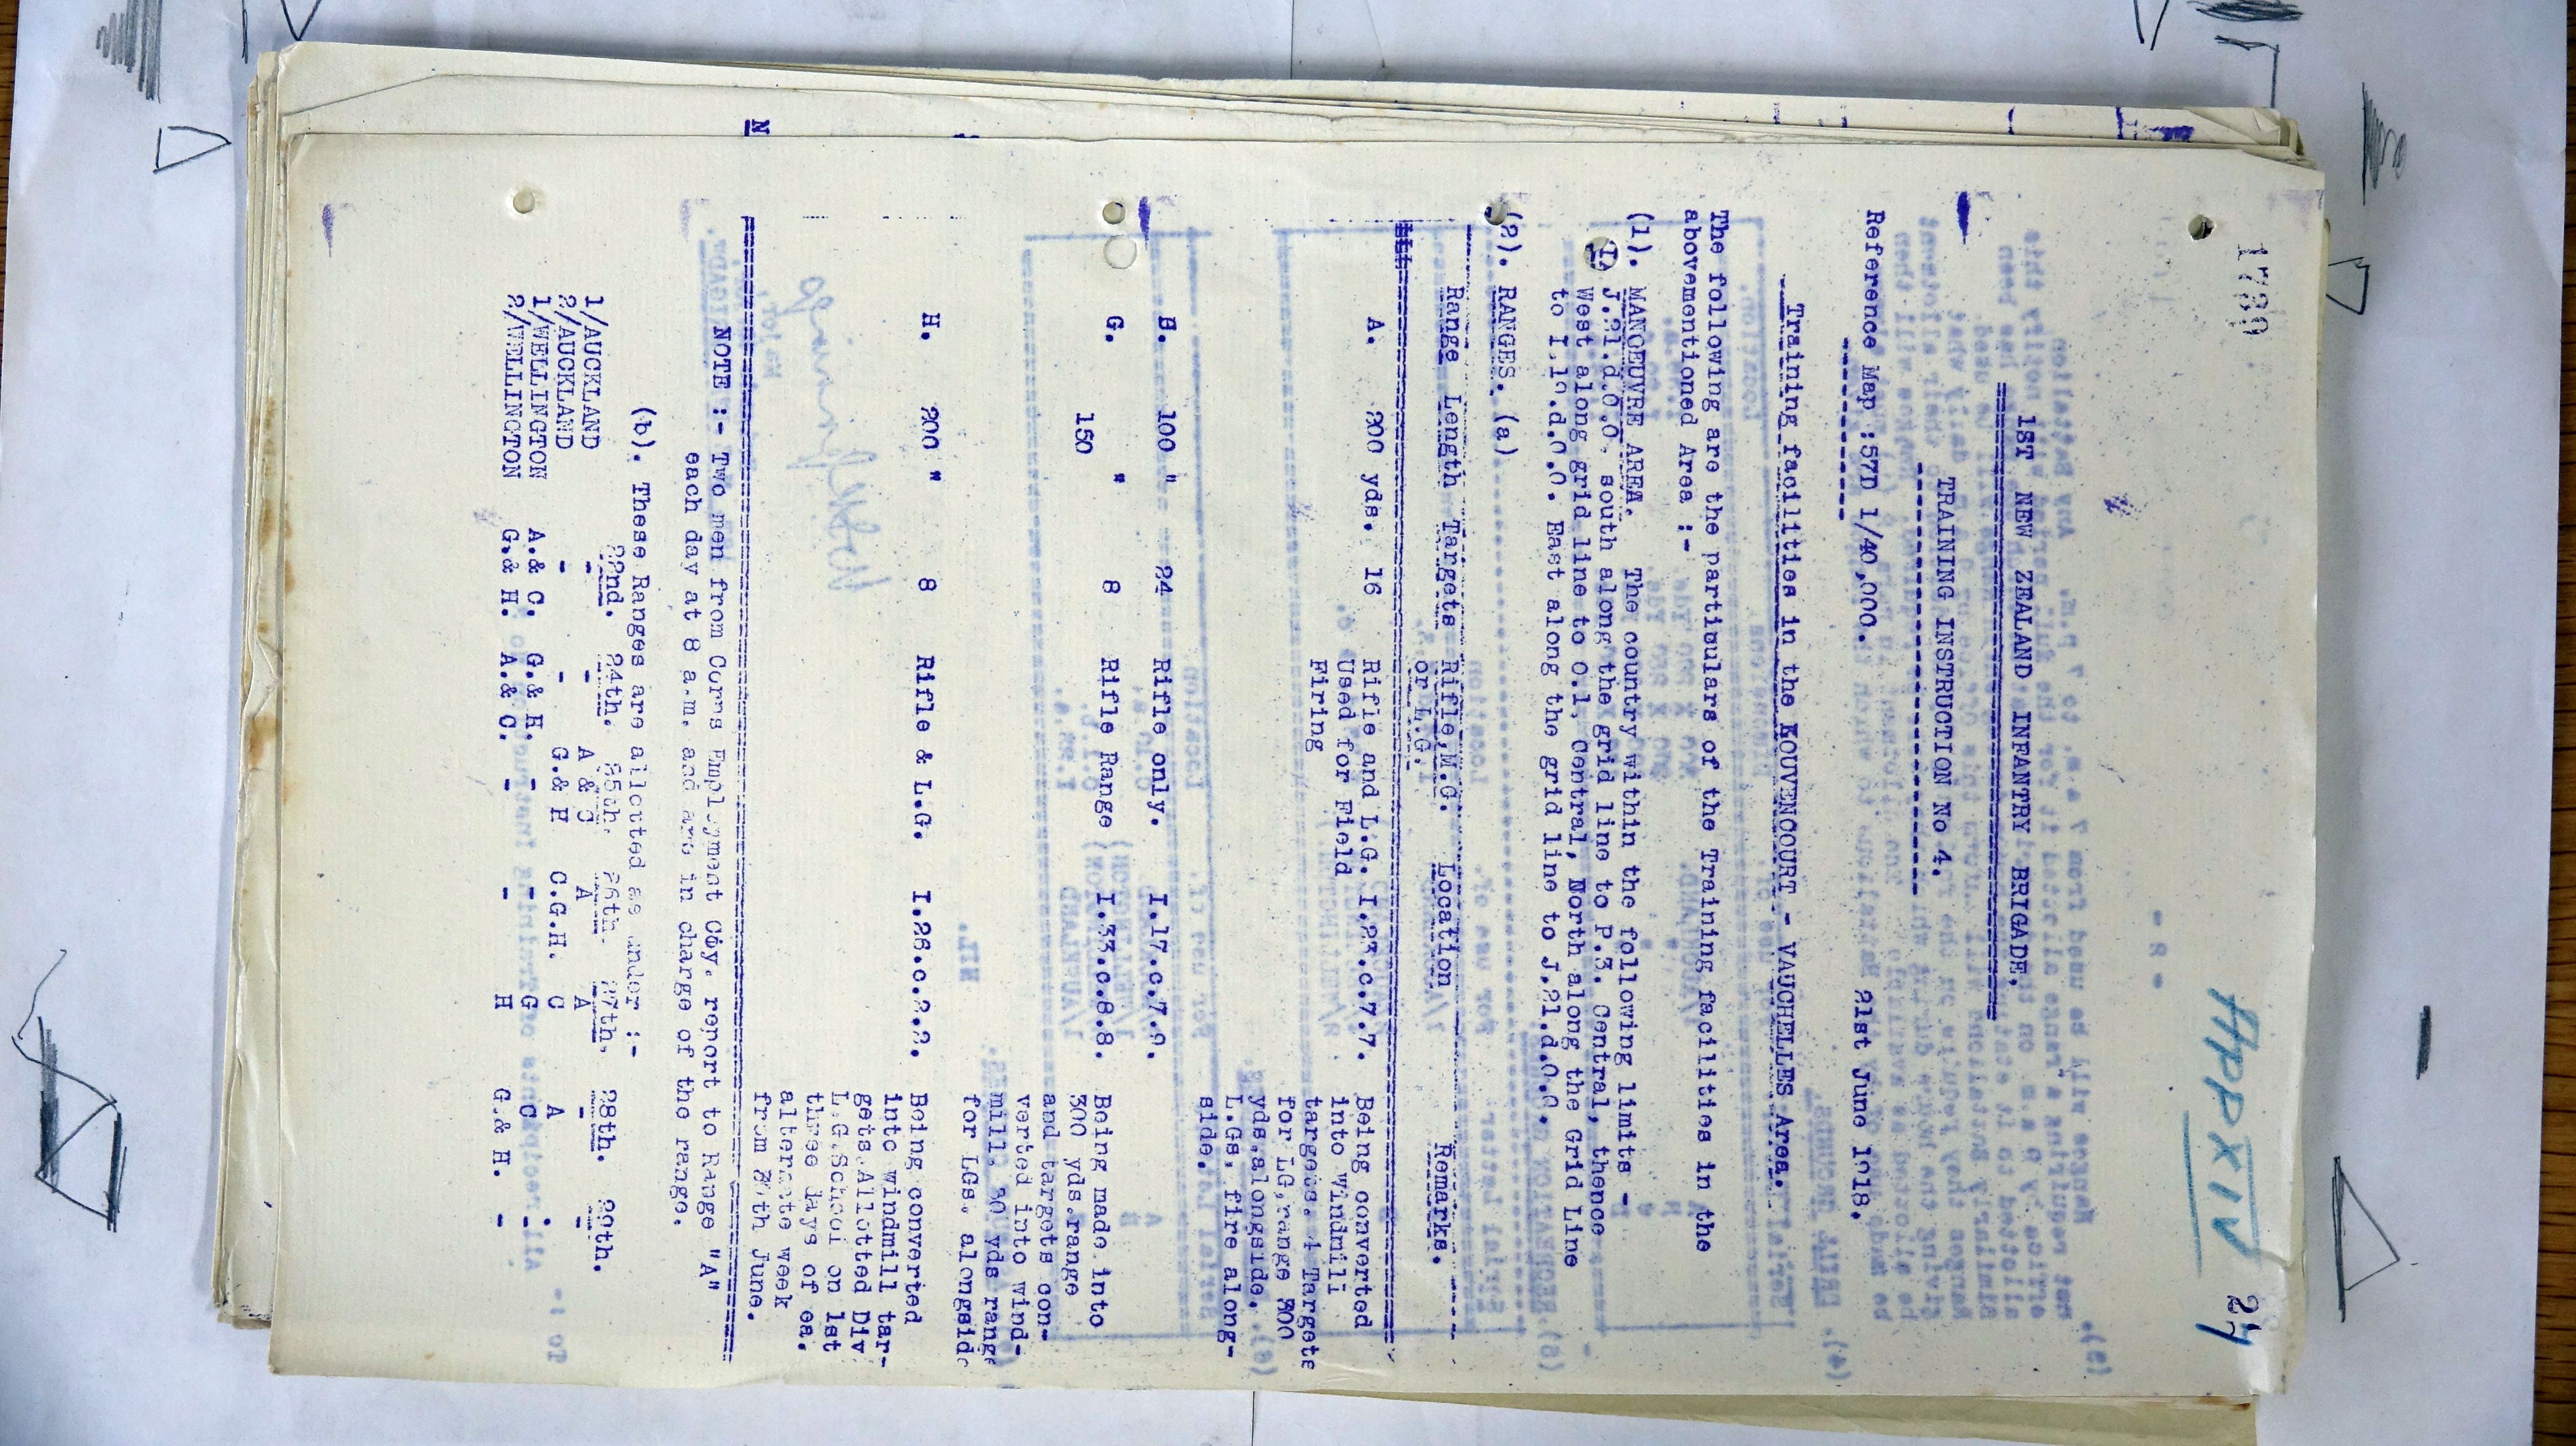 1780
APP XIV 24
1ST NEW ZEALAND INFANTRY BRIGADE.
TRAINING INSTRUCTION No 4.
Reference Map :57D 1/40,000. 21st June 1918.
Training facilities in the LOUVENCOURT - VAUCHELLES Area.
The following are the partibulars of the Training facilities in the
abovementioned Area :-
(1). MANOEUVRE AREA. The country within the following limits -
J.21.d.0.0. south along the grid line to P.3. Central, thence
West along grid line to O.1. Central, North along the Grid Line
to I.19.d.0.0. East along the grid line to J.21.d.0.0.
(2). RANGES. (a)
Range Length Targets Rifle,M.G. Location Remarks.
or L.G.
A. 200 yds. 16 Rifle and L.G. I.23.c.7.7. Being converted
Used for Field into Windmill
Firing targets. 4 Targets
for LG.range 300
yds.alongside.
L.Gs. fire along-
side.
B. 100 " 24 Rifle only. I.17.c.7.9.
G. " 8 Rifle Range I.33.c.8.8. Being made into
150 300 yds.range
and targets con-
verted into wind-
mill. 30 yds range
for LGs. alongside
H. 200 " 8 Rifle & L.G. I.26.c.2.2. Being converted
into windmill tar-
gets.Allotted Div
L.G.School on 1st
three days of ea.
alternate week
from 30th June.
NOTE :- Two men from Corps Employment Coy. report to Range "A"
each day at 8 a.m. and are in charge of the range.
(b). These Ranges are allotted as under :-
22nd. 24th. 25th. 26th. 27th. 28th. 29th.
1/AUCKLAND - - A & C A A - -
2/AUCKLAND - - G.& H C.G.H. C A -
1/WELLINGTON A.& C. G.& H. - - G C -
2/WELLINGTON G.& H. A.& C. - - H G.& H. -